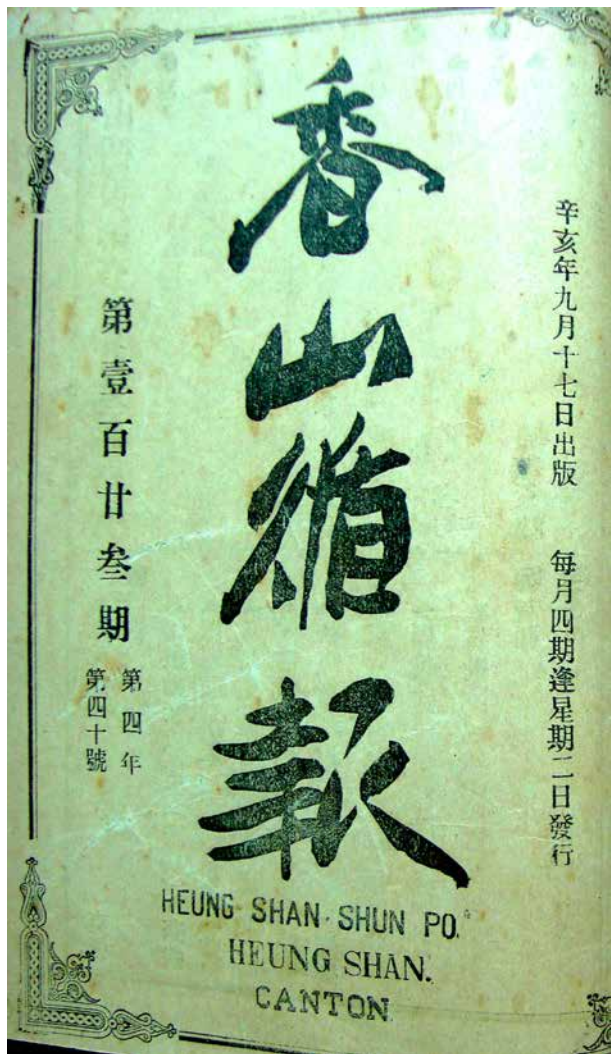 辛亥年九月十七日出版 每月四期逢星期二日發行
香山循報
第壹百廿叁期
第四年
第四十號
HEUNG SHAN SHUN PO.
HEUNG SHAN.
CANTON.